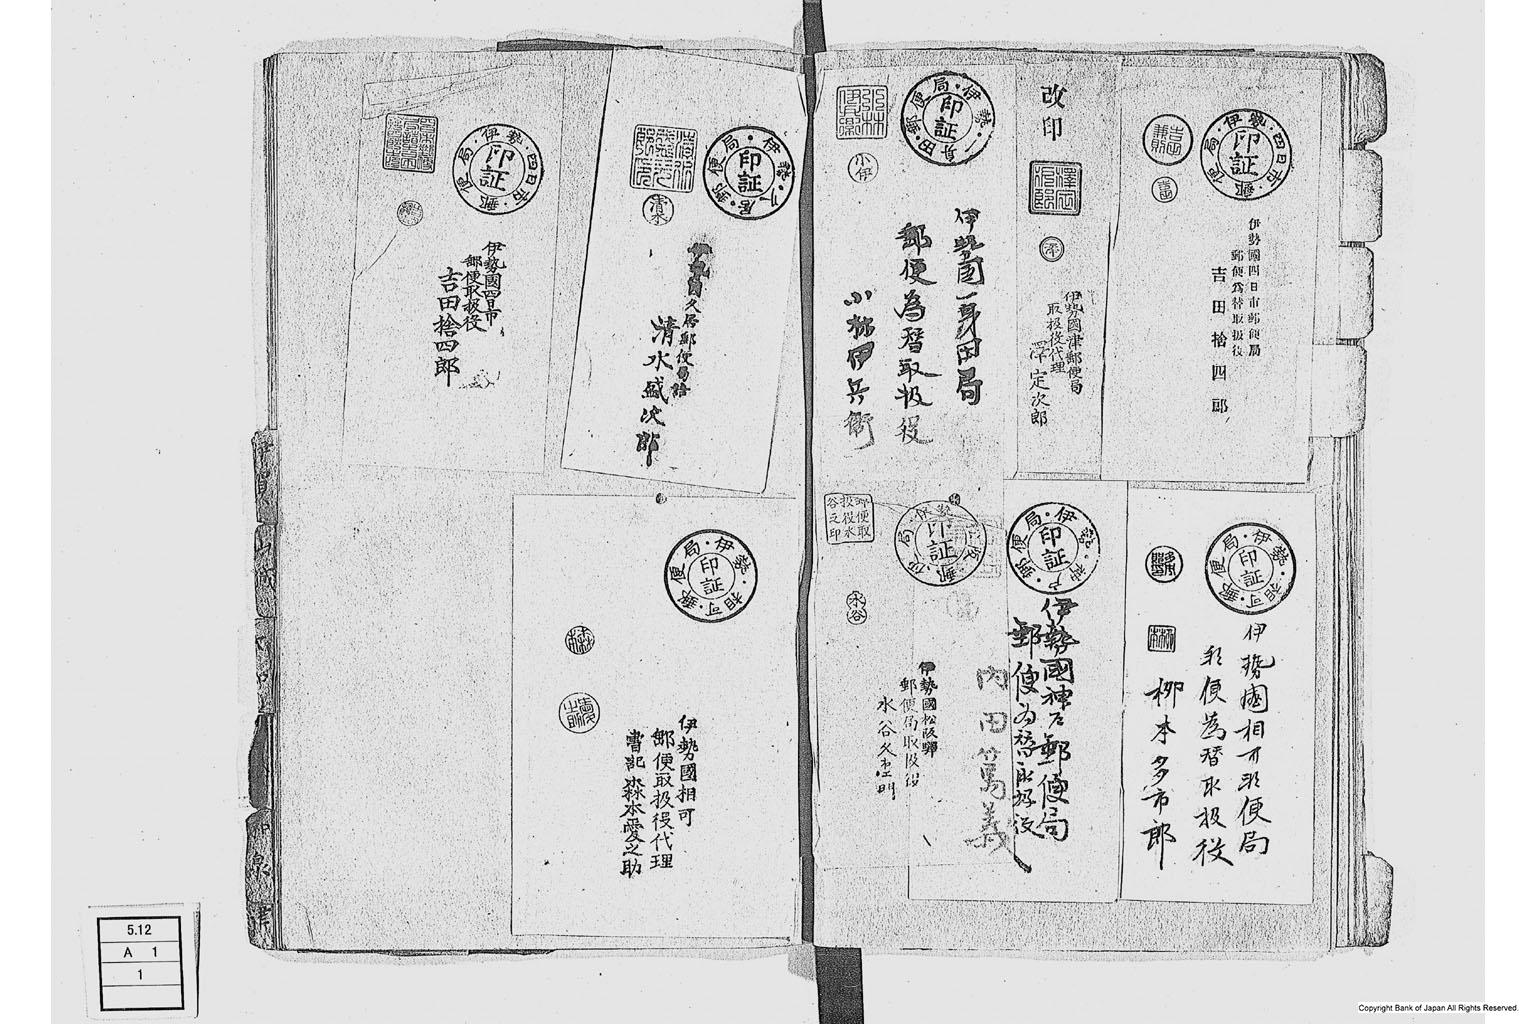 伊勢・四日市・郵便局・
印証
伊勢國四日市郵便局
郵便為替取扱役
吉田捨四郎
改印
澤定次郎
伊勢國津郵便局
取扱役代理
澤定次郎
伊勢・一身田・郵便局・
印証
小伊
伊勢國一身田局
郵便為替取扱役
小林伊兵衛
伊勢・相可・郵便局・
印証
伊勢國相可郵便局
郵便為替取扱役
柳本多市郎
伊勢・神戸・郵便局・
印証
伊勢國神戸郵便局
郵便為替取扱役
内田篤義
印証
郵便取
扱役水
谷之印
水谷
伊勢國松阪驛
郵便局取扱役
水谷久左エ門
伊勢・久居・郵便局・
印証
清水
久居郵便局詰
清水盛次郎
伊勢・四日市・郵便局・
印証
伊勢國四日市
郵便取扱役
吉田捨四郎
伊勢・相可・郵便局・
印証
伊勢國相可
郵便取扱役代理
書記 森本愛之助
神泉
津
5.12
A 1
1
Copyright Bank of Japan All Rights Reserved.